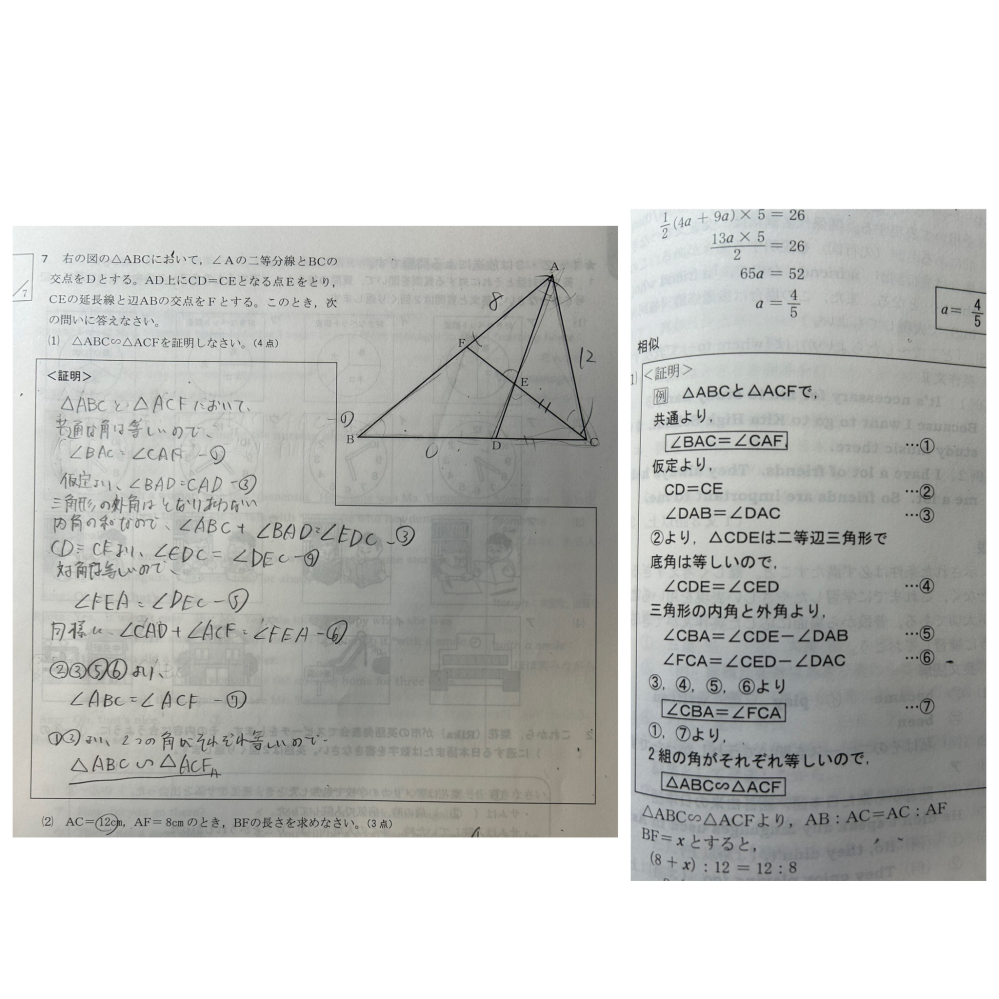 7
7 右の図の△ABCにおいて，∠Aの二等分線とBCの
交点をDとする。AD上にCD＝CEとなる点Eをとり，
CEの延長線と辺ABの交点をFとする。このとき，次
の問いに答えなさい。
(1) △ABC∽△ACFを証明しなさい。(4点)
A
8
F
12
E
B
D
C
＜証明＞
△ABCと△ACFにおいて、
共通な角は等しいので、
∠BAC＝∠CAF －①
仮定より、∠BAD＝CAD －②
三角形の外角はとなりあわない
内角の和なので、∠ABC＋∠BAD＝∠EDC －③
CD＝CEより、∠EDC＝∠DEC －④
対角は等しいので、
∠FEA＝∠DEC －⑤
同様に、∠CAD＋∠ACF＝∠FEA －⑥
②③⑤⑥より、
∠ABC＝∠ACF －⑦
より、2つの角がそれぞれ等しいので
△ABC∽△ACF
(2) AC＝12cm，AF＝8cmのとき，BFの長さを求めなさい。(3点)
1/2(4a＋9a)×5＝26
13a×5/2＝26
65a＝52
a＝4/5
a＝4/5
相似
1)
＜証明＞
例 △ABCと△ACFで，
共通より，
∠BAC＝∠CAF …①
仮定より，
CD＝CE …②
∠DAB＝∠DAC …③
②より，△CDEは二等辺三角形で
底角は等しいので，
∠CDE＝∠CED …④
三角形の内角と外角より，
∠CBA＝∠CDE－∠DAB …⑤
∠FCA＝∠CED－∠DAC …⑥
③，④，⑤，⑥より
∠CBA＝∠FCA …⑦
①，⑦より，
2組の角がそれぞれ等しいので，
△ABC∽△ACF
△ABC∽△ACFより，AB：AC＝AC：AF
BF＝xとすると，
(8＋x)：12＝12：8